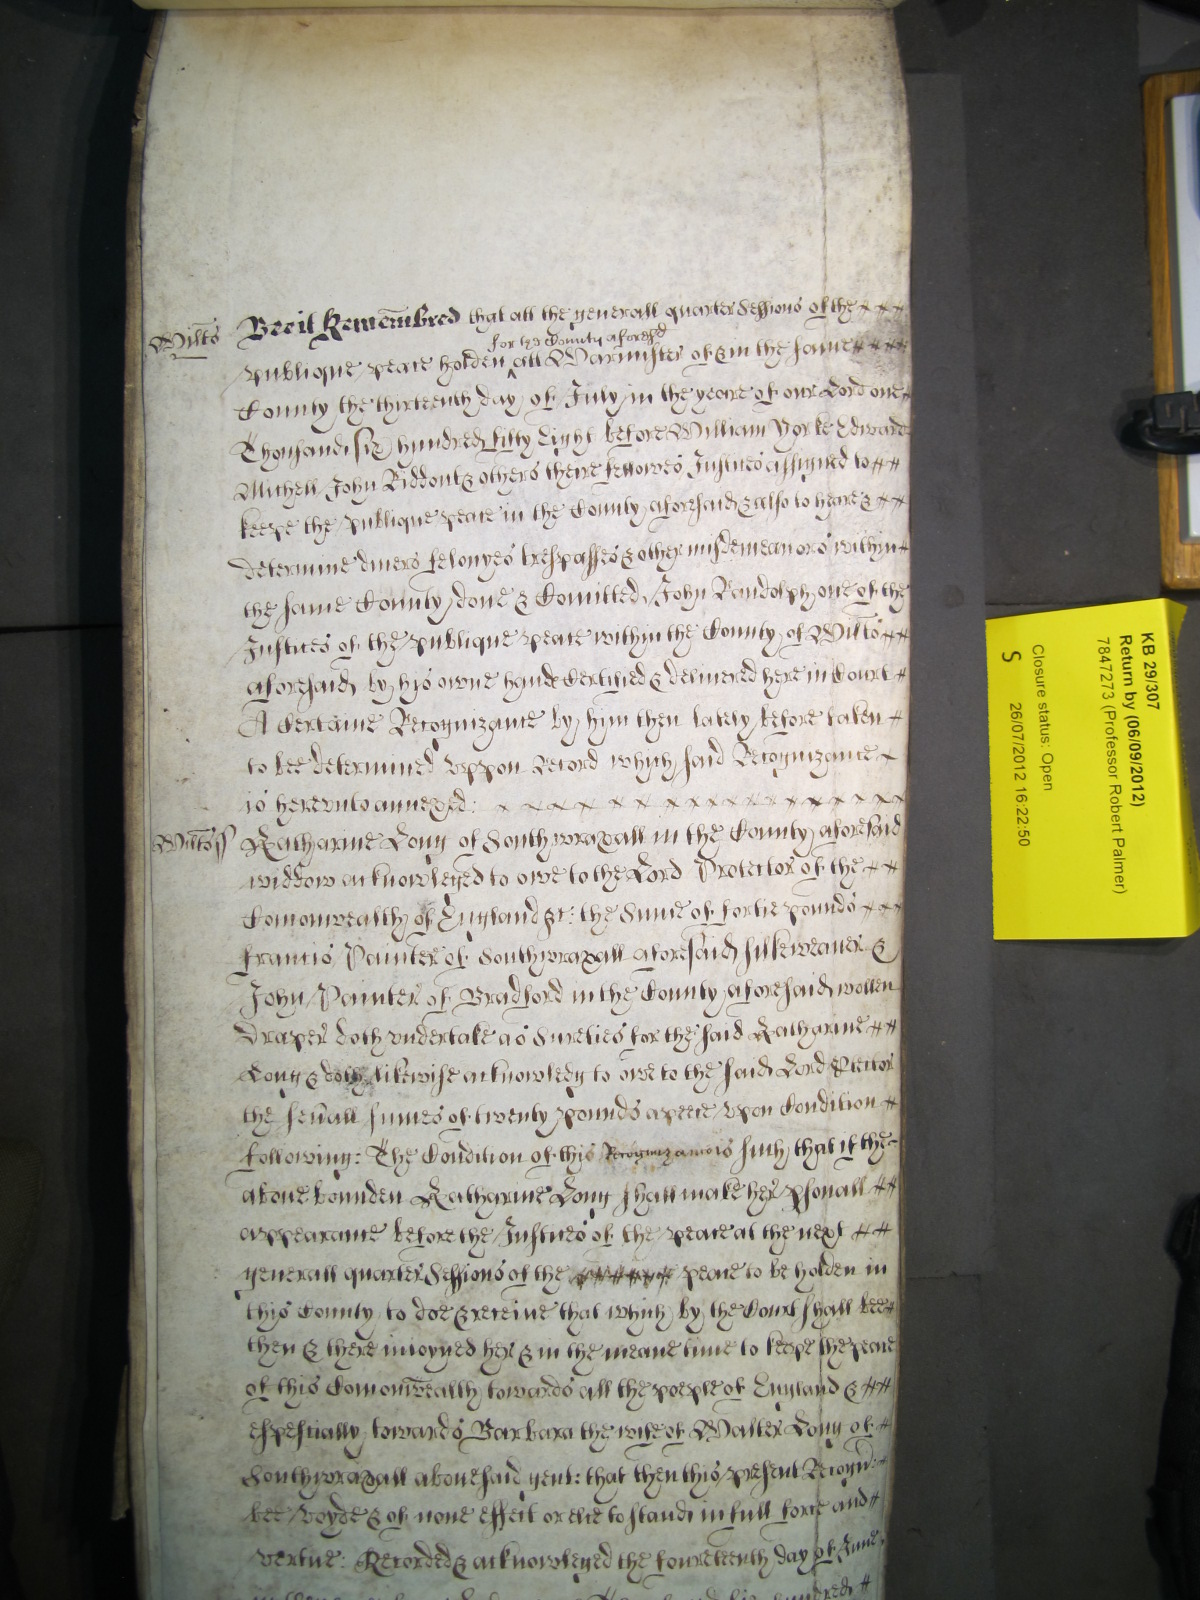 Wiltes Bee it Remembred that att the generall quarter Sessions of the
for the County aforesd
publique peace holden att Warmister of & in the same
County the thirteenth day of July in the yeare of our Lord one
Thousand six hundred fifty Eight before William Yorke Edward
Mitchell John Riddout & others theire fellowes Justices assigned to
keepe the publique peace in the County aforesaid & also to heare &
determine divers felonyes trespasses & other misdemeanors within
the same County done & Comitted, John Randolph one of the
Justices of the publique peace within the County of Wiltes
aforesaid by his owne hand Certified & delivered here in Court
A Certaine Recognizance by him then lately before taken
to bee determined uppon Record which said Recognizance
is hereunto annexed:
Wiltes ss Katharine Long of Southwraxall in the County aforesaid
widdow acknowleged to owe to the Lord Protector of the
Comonwealth of England &c: the Sume of fortie pounds
francis Painter of Southwraxall aforesaid silkeweaver &
John Painter of Bradford in the County aforesaid wollen
Draper doth undertake as Sureties for the said Katharine
Long & doth likewise acknowledg to owe to the said Lord Ptector
the sevall sumes of twenty pounds apeece upon Condition
following: The Condition of this Recognizance is such that if the
above bounden Katharine Long shall make her psonall
appearance before the Justices of the peace at the next
generall quarter Sessions of the peace to be holden in
this County to doe & receive that which by the Court shall bee
then & there injoyned her & in the meane time to keepe the peace
of this Comonwealth towards all the people of England &
espetially towards Barbara the wife of Walter Long of
Southwraxall abovesaid gent: that then this present Recogn:
bee voyde & of none effect or else to stand in full force and
vertue: Recorded & acknowleged the fourteenth day of June
KB 29/307
Return by (06/09/2012)
7847273 (Professor Robert Palmer)
Closure status: Open
S 26/07/2012 16:22:50